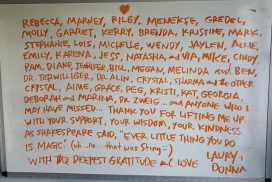 REBECCA, MARNEY, RILEY, MENEKSE, GRETEL,
MOLLY, GARRET, KERRY, BRENDA, KRISTINE, MARK,
STEPHANIE, LOIS, MICHELLE, WENDY, JAYLEN, ALLIE,
EMILY, KARENA, JESS, NATASHA and VIA, MIKE, CINDY
PAM, DIANE, JENNIFER, BILL, MEGAN, MELINDA and BEN,
DR. TERWILLIGER, DR. ALIN, CRYSTAL, SHARMA and the OTHER
CRYSTAL, AIME, GRACE, PEG, KRISTI, KAT, GEORGIA,
DEBORAH and MARINA, DR. ZWEIG... and ANYONE WHO I
MAY HAVE MISSED... THANK YOU FOR LIFTING ME UP
WITH YOUR SUPPORT, YOUR WISDOM, YOUR KINDNESS.
AS SHAKESPEARE SAID, "EVER LITTLE THING YOU DO
IS MAGIC." (uh...no...that was Sting.)
WITH THE DEEPEST GRATITUDE and LOVE LAURY +
DONNA